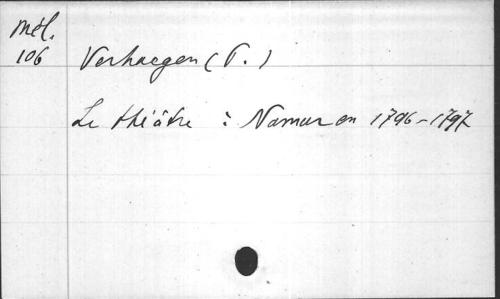 Mél.
106
Verhaegen (P.)
Le théâtre à Namur en 1796-1797